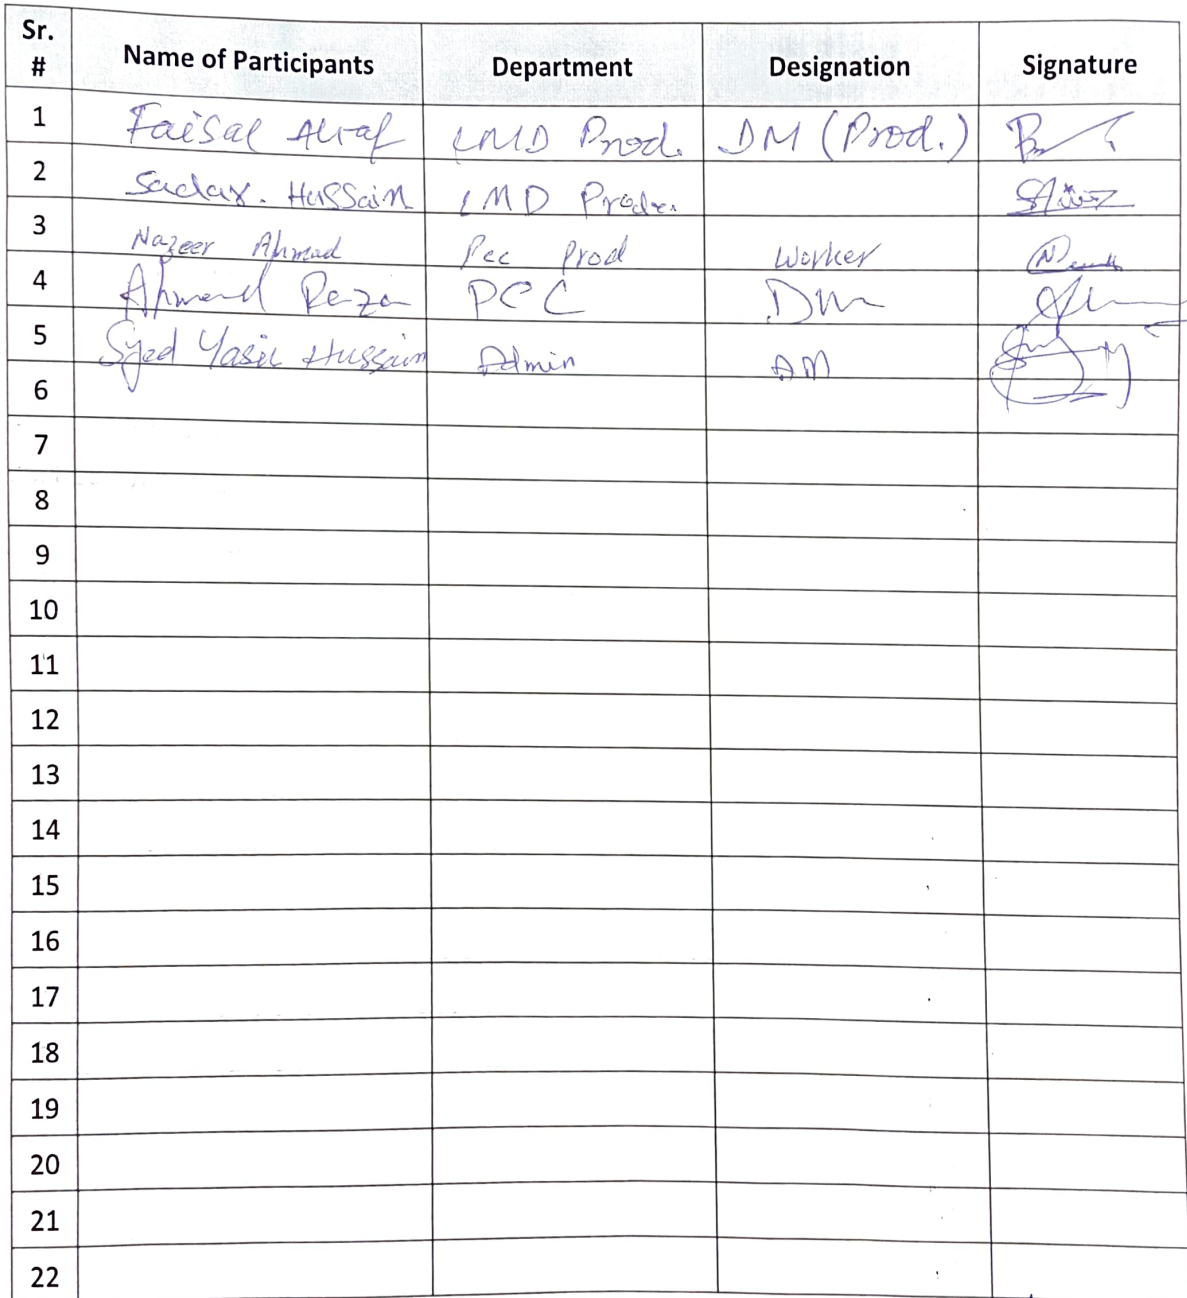 Sr. # Name of Participants Department Designation Signature
1 Faisal Altaf LMD Prod. DM (Prod.)
2 Sadar. Hussain LMD Prod.
3 Nazeer Ahmad Pcc Prod Worker
4 Ahmad Raza PCC DM
5 Syed Yasir Hussain Admin AM
6
7
8
9
10
11
12
13
14
15
16
17
18
19
20
21
22